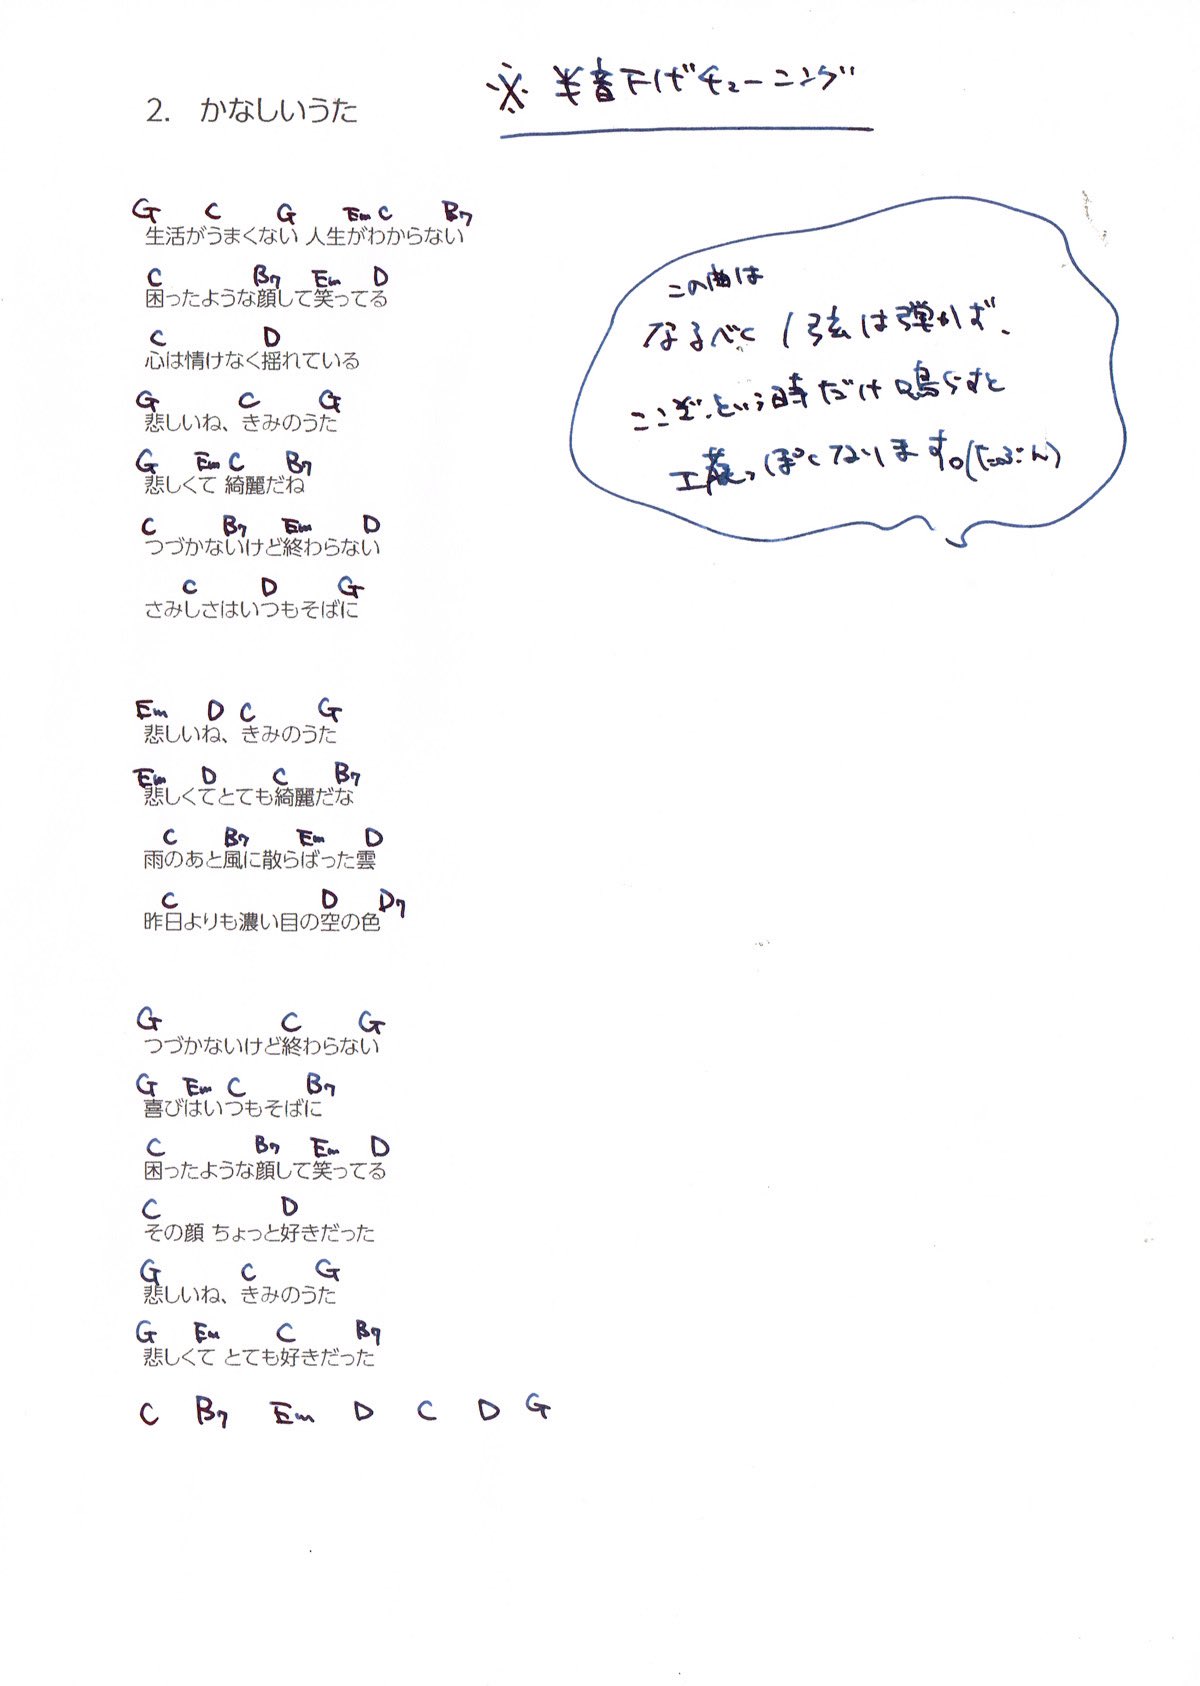 2. かなしいうた
※ 半音下げチューニング
G C G Em C B7
生活がうまくない 人生がわからない
C B7 Em D
困ったような顔して笑ってる
C D
心は情けなく揺れている
G C G
悲しいね、きみのうた
G Em C B7
悲しくて 綺麗だね
C B7 Em D
つづかないけど終わらない
C D G
さみしさはいつもそばに
この曲は
なるべく 1弦は弾かず、
ここぞ、という時だけ鳴らすと
工藤っぽくなります。(たぶん)
Em D C G
悲しいね、きみのうた
Em D C B7
悲しくてとても綺麗だな
C B7 Em D
雨のあと風に散らばった雲
C D D7
昨日よりも濃い目の空の色
G C G
つづかないけど終わらない
G Em C B7
喜びはいつもそばに
C B7 Em D
困ったような顔して笑ってる
C D
その顔 ちょっと好きだった
G C G
悲しいね、きみのうた
G Em C B7
悲しくて とても好きだった
C B7 Em D C D G